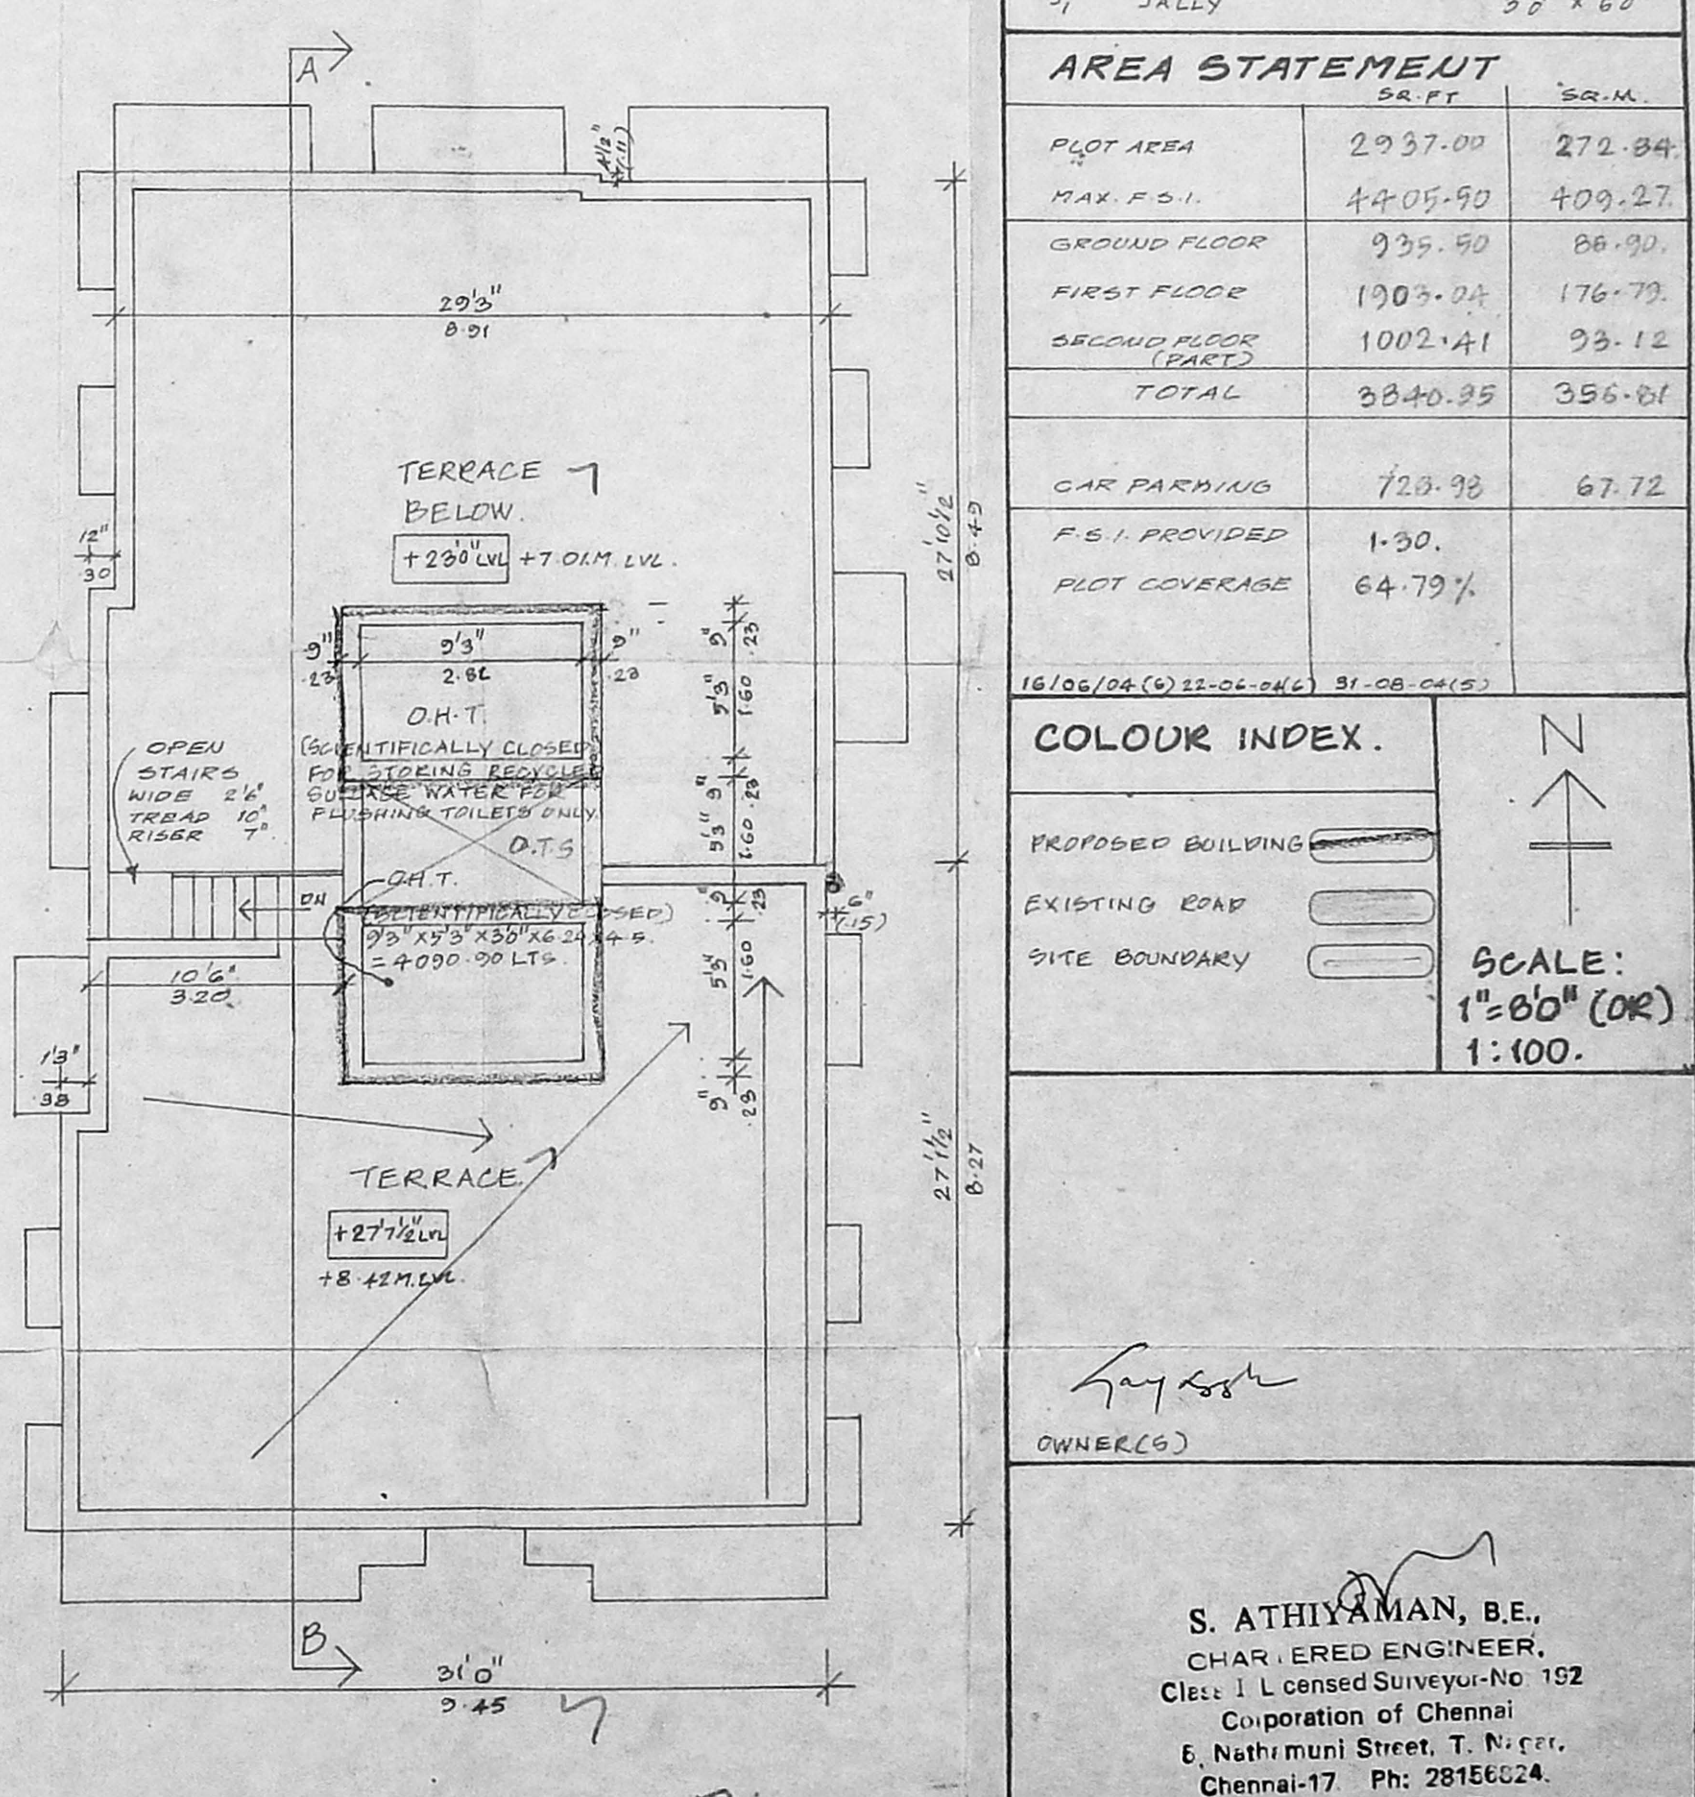 A
4½"
(.11)
29'3"
8.91
TERRACE
BELOW.
+23'0" LVL +7.01.M. LVL.
12"
30
27'10½"
8.49
9"
.23
9'3"
2.82
9"
.23
O.H.T.
(SCIENTIFICALLY CLOSED
FOR STORING RECYCLED
SULLAGE WATER FOR
FLUSHING TOILETS ONLY.
OPEN
STAIRS
WIDE 2'6"
TREAD 10"
RISER 7"
9" .23
5'3" 1.60
9" .23
5'3" 1.60
9" .23
5'3" 1.60
9" .23
O.T.S
O.H.T.
DN
(SCIENTIFICALLY CLOSED)
9'3"X5'3"X3'0"X6.24X4.5.
=4090.90 LTS.
6"
(.15)
10'6"
3.20
1'3"
38
TERRACE
+27'7½" LVL
+8.42M.LVL.
27'1½"
8.27
B
31'0"
9.45
JALLY
AREA STATEMENT
SQ.FT SQ.M.
PLOT AREA 2937.00 272.84
MAX. F.S.I. 4405.50 409.27
GROUND FLOOR 935.50 86.90.
FIRST FLOOR 1903.04 176.79.
SECOND FLOOR 1002.41 93.12
(PART)
TOTAL 3840.95 356.81
CAR PARKING 728.98 67.72
F.S.I. PROVIDED 1.30.
PLOT COVERAGE 64.79%
16/06/04(6) 22-06-04(6) 31-08-04(5)
COLOUR INDEX.
PROPOSED BUILDING
EXISTING ROAD
SITE BOUNDARY
N
SCALE:
1"=8'0" (OR)
1:100.
OWNER(S)
S. ATHIYAMAN, B.E.,
CHARTERED ENGINEER,
Class I Licensed Surveyor-No 192
Corporation of Chennai
6, Nathamuni Street, T. Nagar,
Chennai-17. Ph: 28156824.